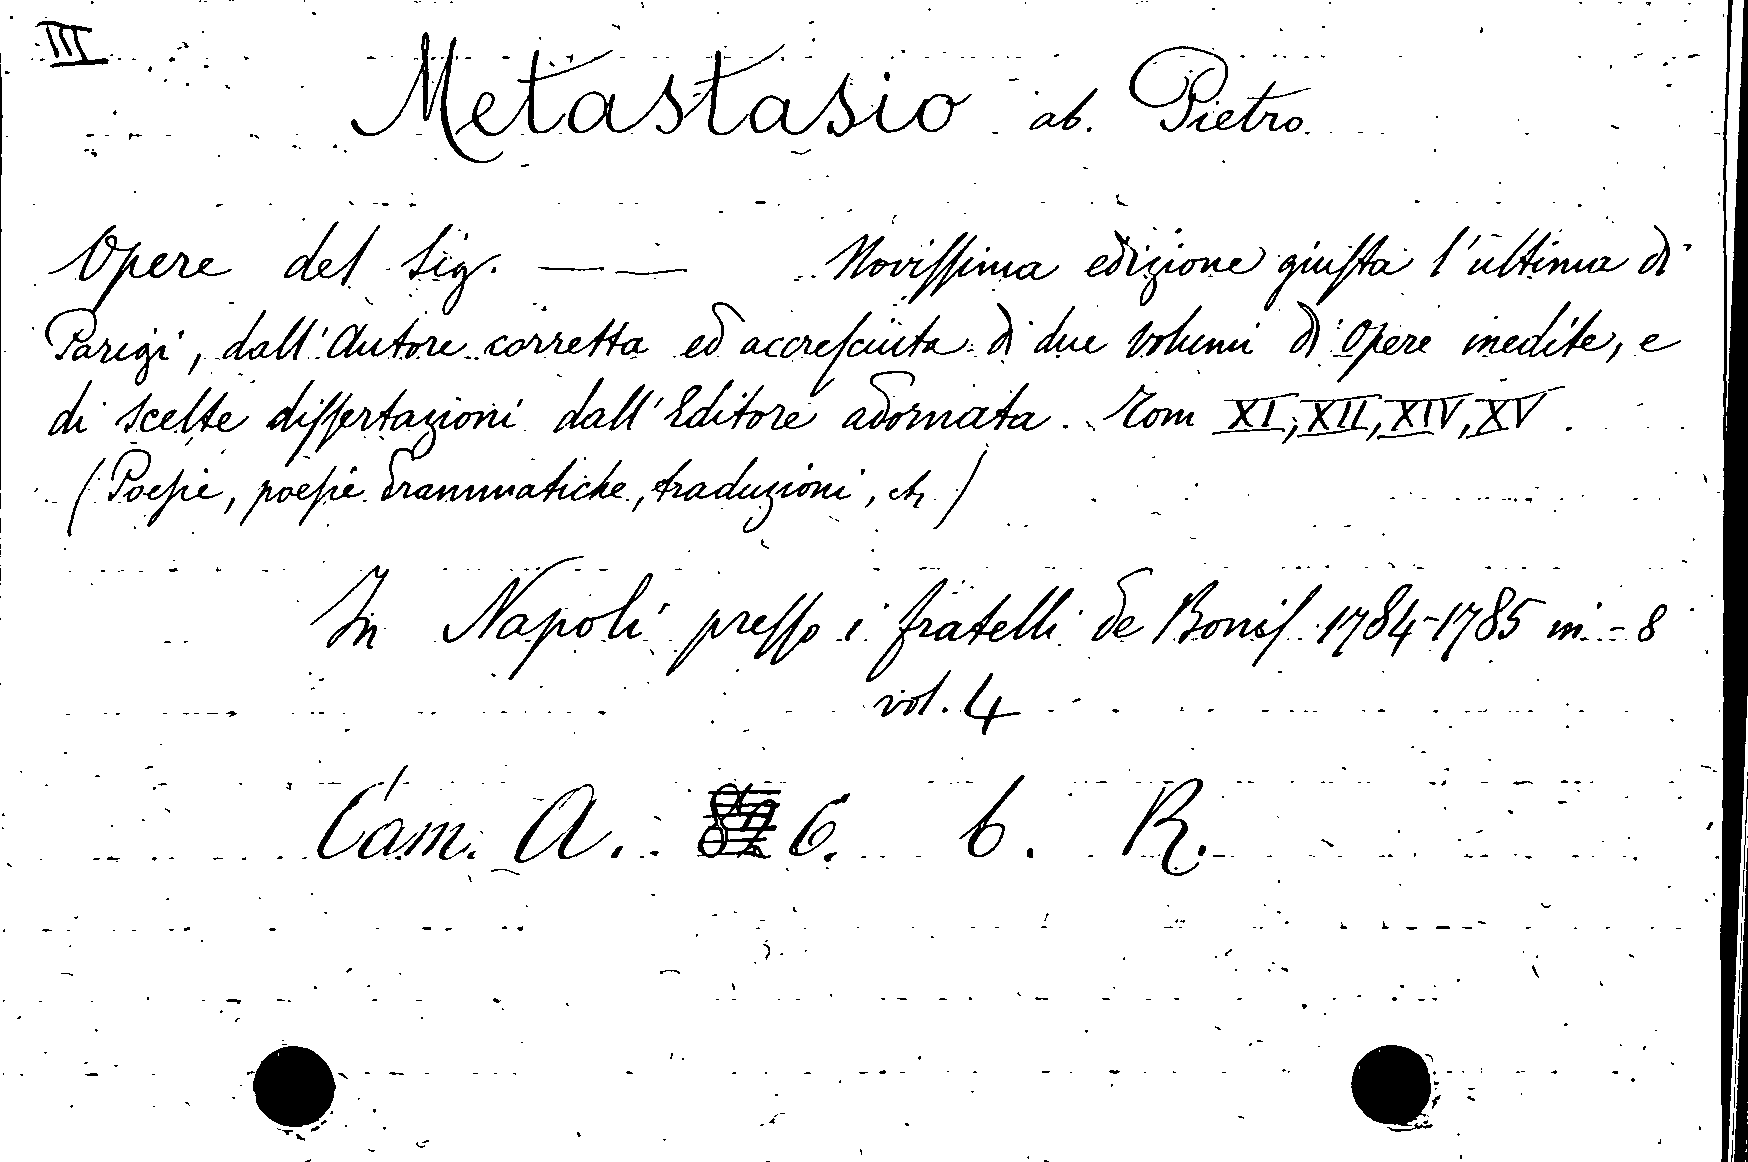 III
Metastasio ab. Pietro
Opere del Sig. — — Novissima edizione giusta l'ultima di
Parigi, dall'Autore corretta ed accresciuta di due volumi di Opere inedite, e
di scelte dissertazioni dall'Editore adornata. Tom XI, XII, XIV, XV.
(Poesie, poesie drammatiche, traduzioni, etc)
In Napoli presso i fratelli de Bonis 1784-1785 in-8
vol. 4
Cam. A. 6. b. R.